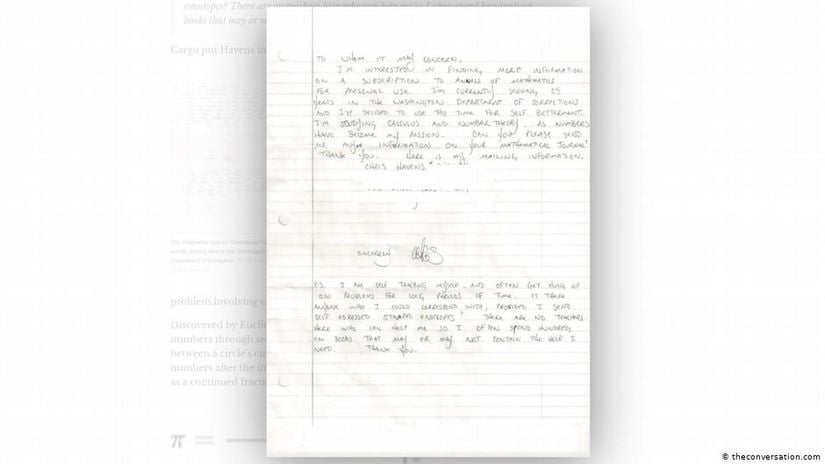 envelopes? There are no teachers here who can help me so I often spend hundreds on
books that may or m
Cargo put Havens in
TO WHOM IT MAY CONCERN,
I'M INTERESTED IN FINDING MORE INFORMATION
ON A SUBSCRIPTION TO ANNALS OF MATHEMATICS
FOR PERSONAL USE. I'M CURRENTLY SERVING 25
YEARS IN THE WASHINGTON DEPARTMENT OF CORRECTIONS
AND I'VE DECIDED TO USE THIS TIME FOR SELF BETTERMENT.
I'M STUDYING CALCULUS AND NUMBER THEORY, AS NUMBERS
HAVE BECOME MY PASSION. CAN YOU PLEASE SEND
ME ANY INFORMATION ON YOUR MATHEMATICAL JOURNAL?
THANK YOU. HERE IS MY MAILING INFORMATION,
CHRIS HAVENS
SINCERELY
P.S. I AM SELF TEACHING MYSELF AND OFTEN GET HUNG UP
ON PROBLEMS FOR LONG PERIODS OF TIME. IS THERE
ANYONE WHO I COULD CORRESPOND WITH, PROVIDED I SEND
SELF ADRESSED STAMPED ENVELOPES? THERE ARE NO TEACHERS
HERE WHO CAN HELP ME SO I OFTEN SPEND HUNDREDS
ON BOOKS THAT MAY OR MAY NOT CONTAIN THE HELP I
NEED. THANK YOU.
problem involving c
Discovered by Eucli
numbers through se
between a circle's ci
numbers after the in
as a continued fracti
π
© theconversation.com